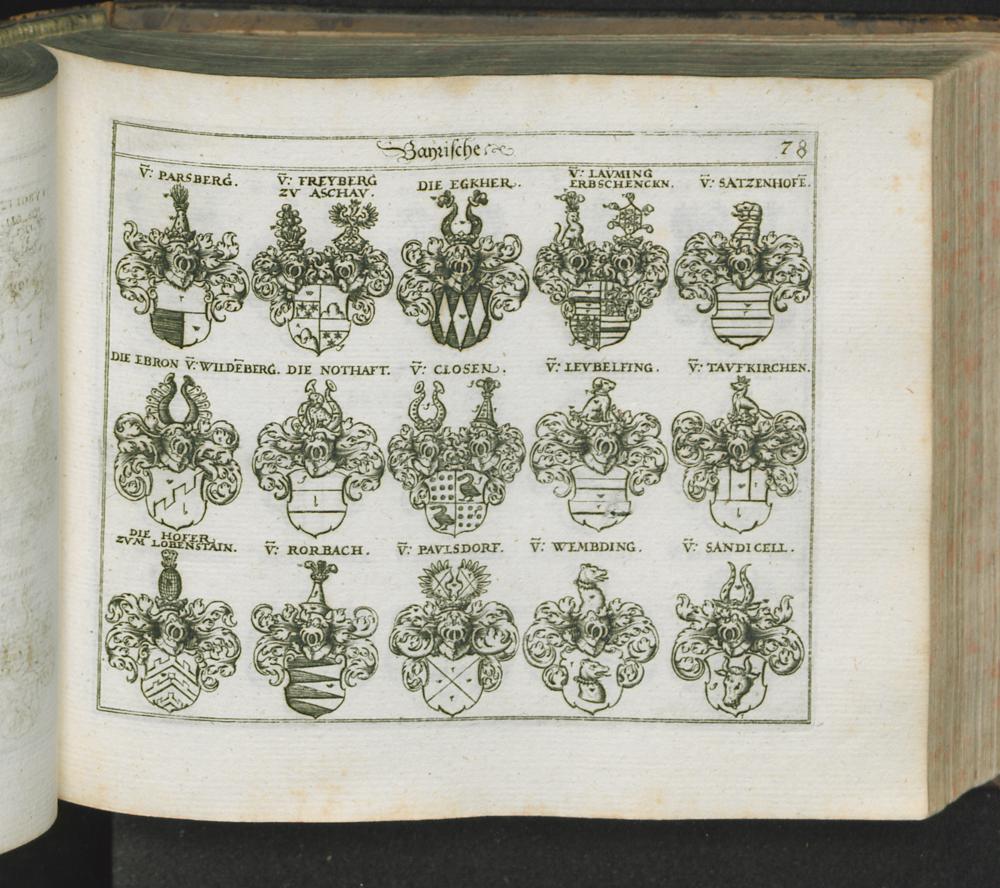 Bayrische
78
V̈: PARSBERG.
V̈: FREYBERG
ZV ASCHAV.
DIE EGKHER.
V̈: LAVMING
ERBSCHENCKN.
V̈: SATZENHOFE̅.
DIE EBRON V̈: WILDE̅BERG.
DIE NOTHAFT.
V̈: CLOSEN.
V̈: LEVBELFING.
V̈: TAVFKIRCHEN.
DIE HOFER
ZVM LOBENSTAIN.
V̈: RORBACH.
V̈: PAVLSDORF.
V̈: WEMBDING.
V̈: SANDICELL.